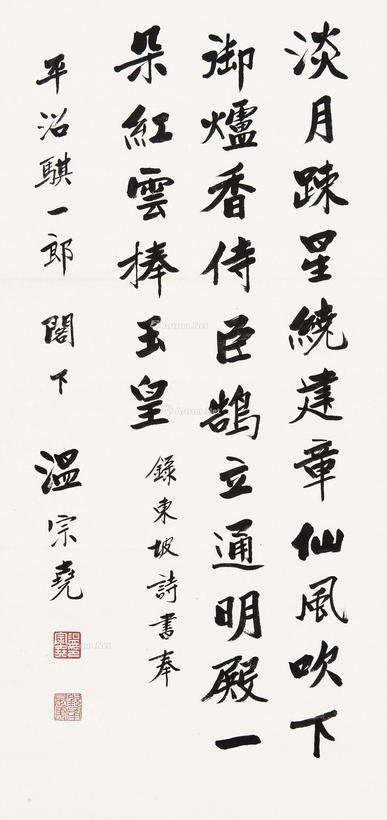 淡月踈星繞建章仙風吹下
御爐香侍臣鵠立通明殿一
朵紅雲捧玉皇
錄東坡詩書奉
平沼騏一郎 閣下
溫宗堯